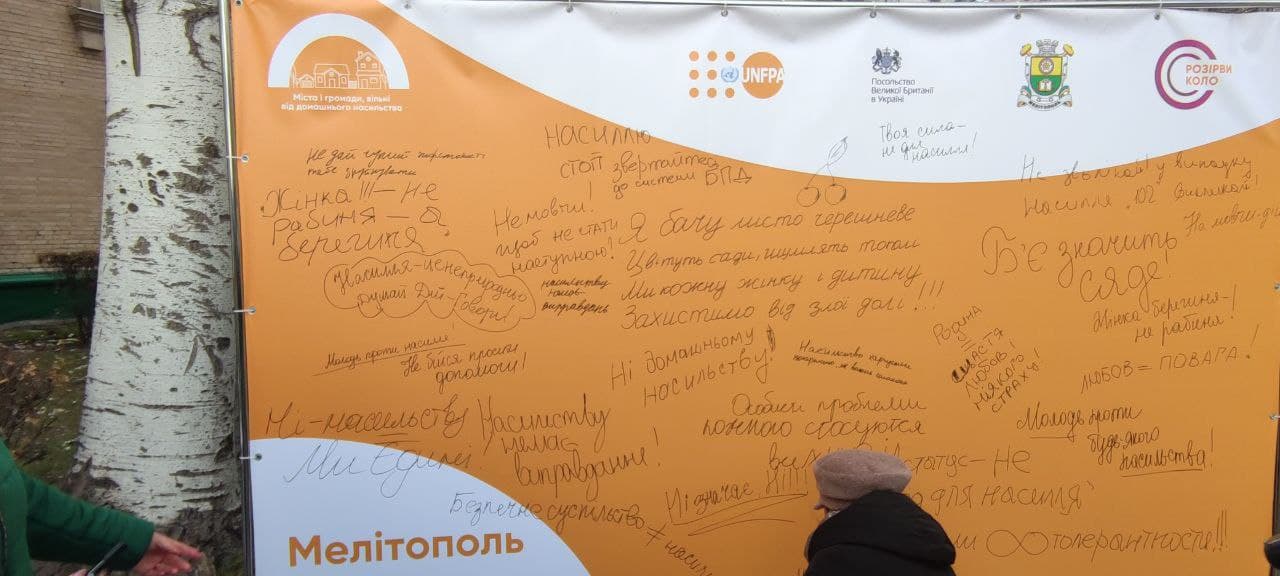 Місто і громади, вільні
від домашнього насильства
UNFPA
Посольство
Великої Британії
в Україні
РОЗІРВИ
КОЛО
Не дай
тебе
Жінка !!! – не
рабиня – а
берегиня
НАСИЛЛЮ
СТОП звертайтесь
! до системи БПД
Твоя сила –
не для
насилля!
Не мовчи! у випадку
насилля "102" викликай!
Не мовчи-
Не мовчи!
щоб не стати
наступною!
Я бачу місто черешневе
Цвітуть сади, шумлять тополі
Ми кожну жінку і дитину
Захистимо від злої долі!!!
Б'є значить
сяде!
Насилля – це неприродньо
Думай Дій –
Говори!
насильству
немає
виправдань
Жінка берегиня – !
не рабиня!
Молодь проти насилля
Не бійся просити
допомоги!
Ні домашньому
насильству!
Насильство
Родина
=
ЩАСТЯ
ЛЮБОВ!
НІЯКОГО
СТРАХУ!
ЛЮБОВ = ПОВАГА!
Ні – насильству
Ми Єдині
Насильству
немає
виправдання!
Особисті проблеми
кожного стосуються
всіх
статус – не
для насилля
Молодь проти
будь-якого
насильства!
Ні означає НІ!!!
Безпечне суспільство
≠ насил
∞ толерантності!!!
Мелітополь